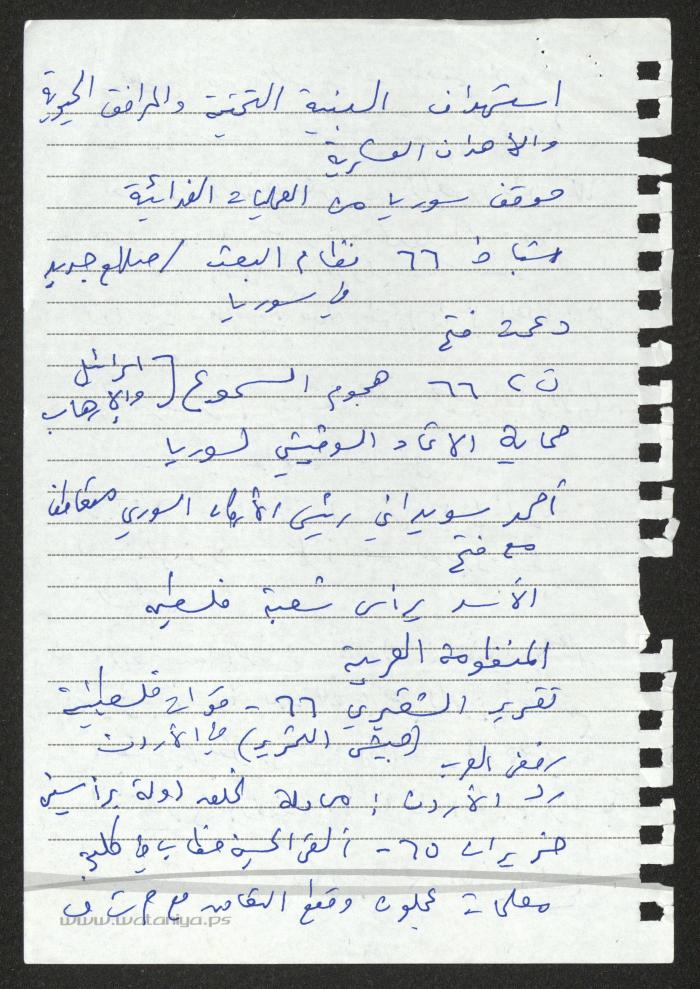 استهداف البنية التحتية والمرافق الحيوية
والأهداف العسكرية
موقف سوريا من العمليات الفدائية
شباط ٦٦ نظام البعث / صلاح جديد
في سوريا
دعمت فتح
ت٢ ٦٦ هجوم السموع [ اسرائيل
والإرهاب
حماية الاتحاد السوفيتي لسوريا
أحمد سويداني رئيس الأركان السوري متعاطف
مع فتح
الأسد يرأس شعبة فلسطين
المنظومة العربية
تقرير الشقيري ٦٦ - قوات فلسطينية
(جيش التحرير) في الأردن
رفض العرب
رد الأردن : محاولة لخلق دولة برأسين
حزيران ٦٥ - ألقى الحسين خطاب في كلية
معلمات عجلون وقطع التعاون مع م ت ف
www.wataniya.ps